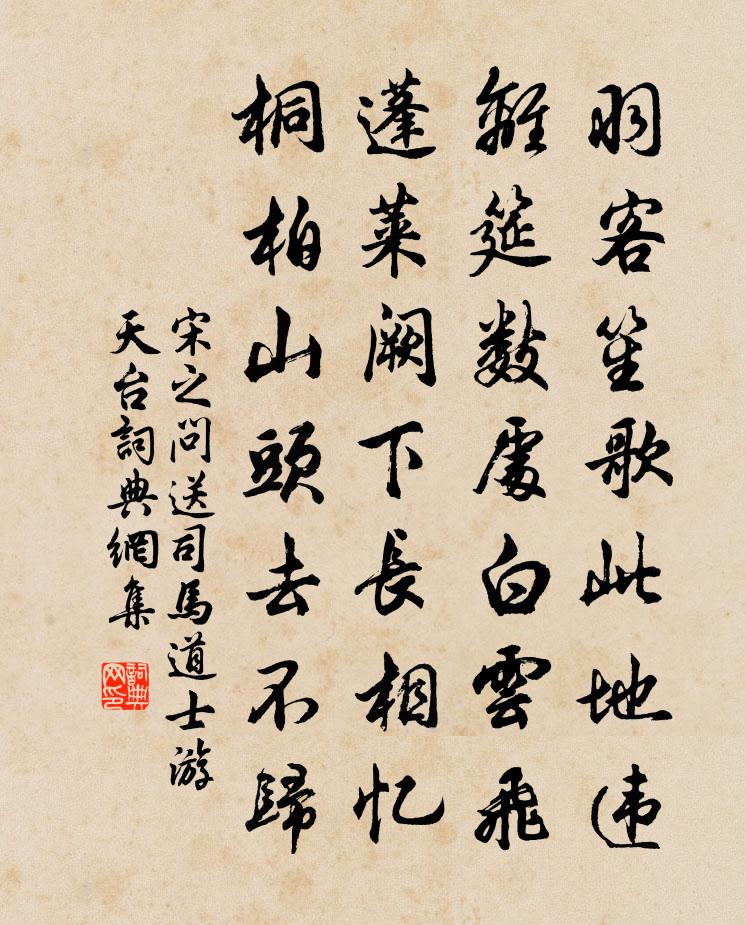 羽客笙歌此地违
離筵數處白雲飛
蓬萊闕下長相忆
桐柏山頭去不歸
宋之问送司馬道士游
天台詞典網集
詞典网印